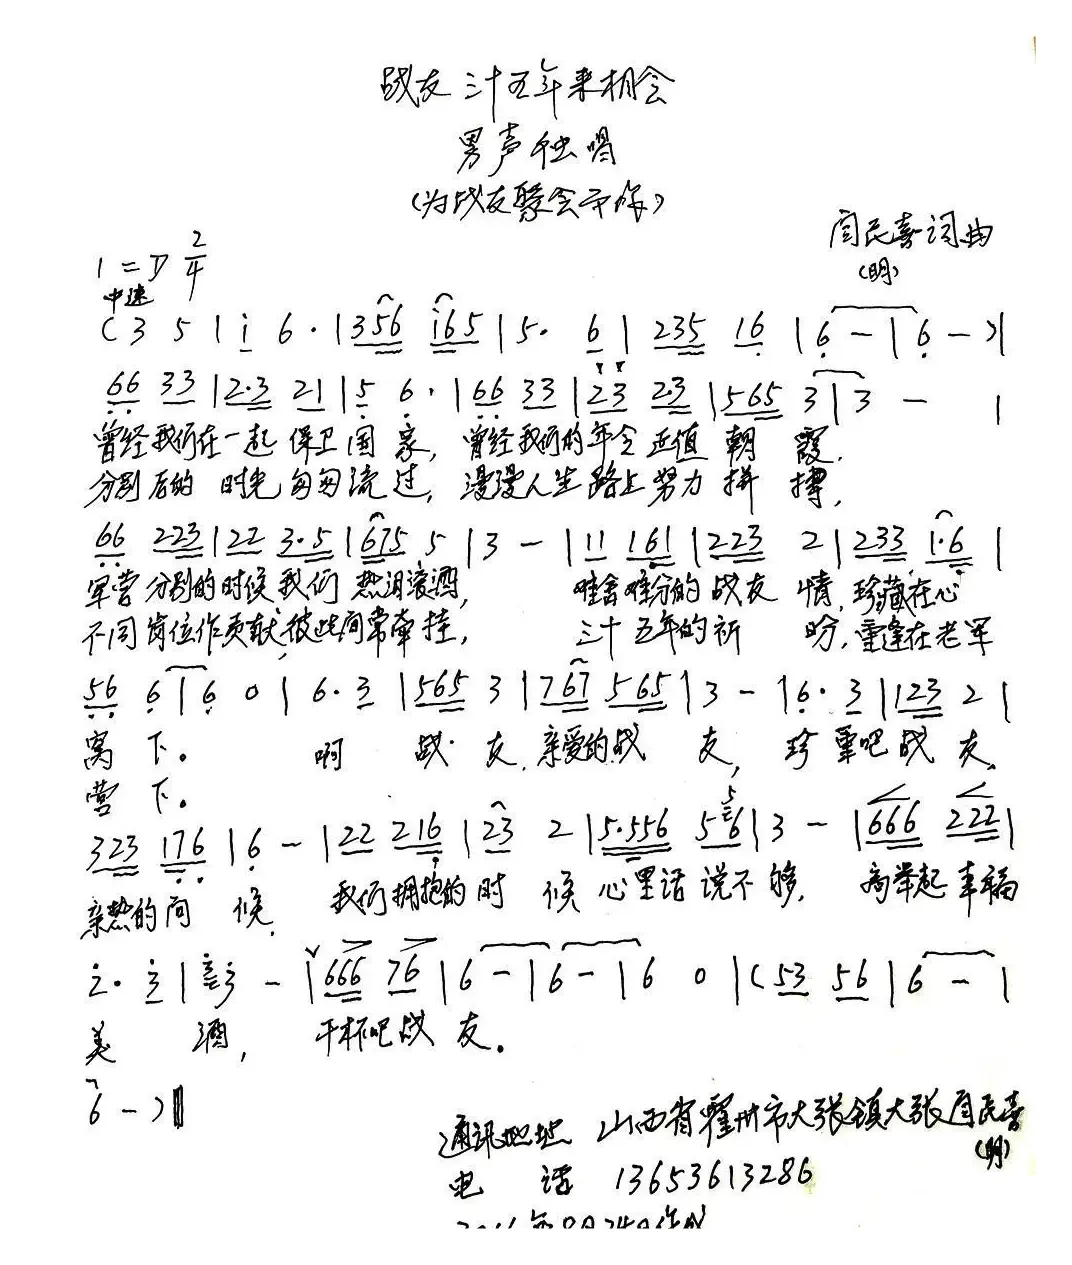 战友三十五年来相会
男声独唱
(为战友聚会而作)
闫民喜词曲
(明)
1=D 2/4
中速
(3 5 | i 6· | 356 i65 | 5· 6 | 235 16 | 6 - | 6 - ) |
66 33 | 2·3 21 | 5 6· | 66 33 | 23 23 | 565 3 | 3 - |
曾经我们在一起保卫国家,曾经我们的年令正值朝霞.
分别后的时光匆匆流过,漫漫人生路上努力拼搏,
66 223 | 22 3·5 | 675 5 | 3 - | 11 161 | 223 2 | 233 1·6 |
军营分别的时候我们热泪滚洒,难舍难分的战友情,珍藏在心
不同岗位作贡献,彼此间常牵挂,三十五年的祈盼,重逢在老军
56 6 | 6 0 | 6· 3 | 565 3 | 767 565 | 3 - | 6· 3 | 123 2 |
窝下。啊战友,亲爱的战友,珍重吧战友,
营下。
323 176 | 6 - | 22 216 | 23 2 | 5·556 56 | 3 - | 666 222 |
亲热的问候,我们拥抱的时候心里话说不够,高举起幸福
2· 3 | 3 - | 666 76 | 6 - | 6 - | 6 0 | (53 56 | 6 - |
美酒,干杯吧战友。
6 - ) ‖
通讯地址 山西省霍州市大张镇大张闫民喜
(明)
电话 13653613286